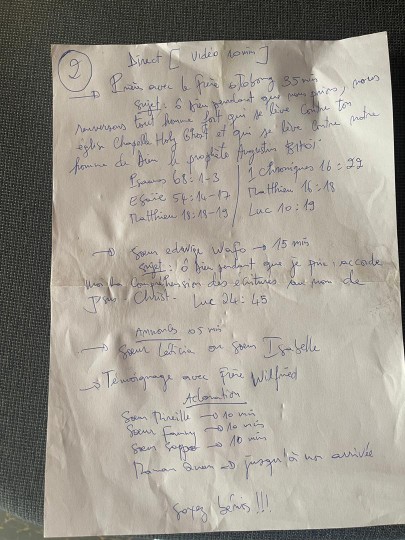 2
Direct [ Vidéo 10min ]
→ Prière avec le frère 35min
Sujet : Ô Dieu pendant que nous prions, nous
renversons tout homme fort qui se lève contre ton
église Chapelle Holy Ghost et qui se lève contre notre
homme de Dieu le prophète Augustin
Psaumes 68 : 1-3 / 1 Chroniques 16 : 22
Esaïe 54 : 14-17 / Matthieu 16 : 18
Matthieu 18 : 18-19 / Luc 10 : 19
→ Soeur edwige Wafo → 15 min
Sujet : Ô Dieu pendant que je prie, accorde
moi la compréhension des écritures au nom de
Jésus-Christ. Luc 24 : 45
Annonces 05 min
→ Soeur Léticia ou Soeur Isabelle
→ Témoignage avec frère Wilfried
Adoration
Soeur Mireille → 10 min
Soeur Fanny → 10 min
Soeur → 10 min
Maman → jusqu'à mon arrivée
Soyez bénis !!!